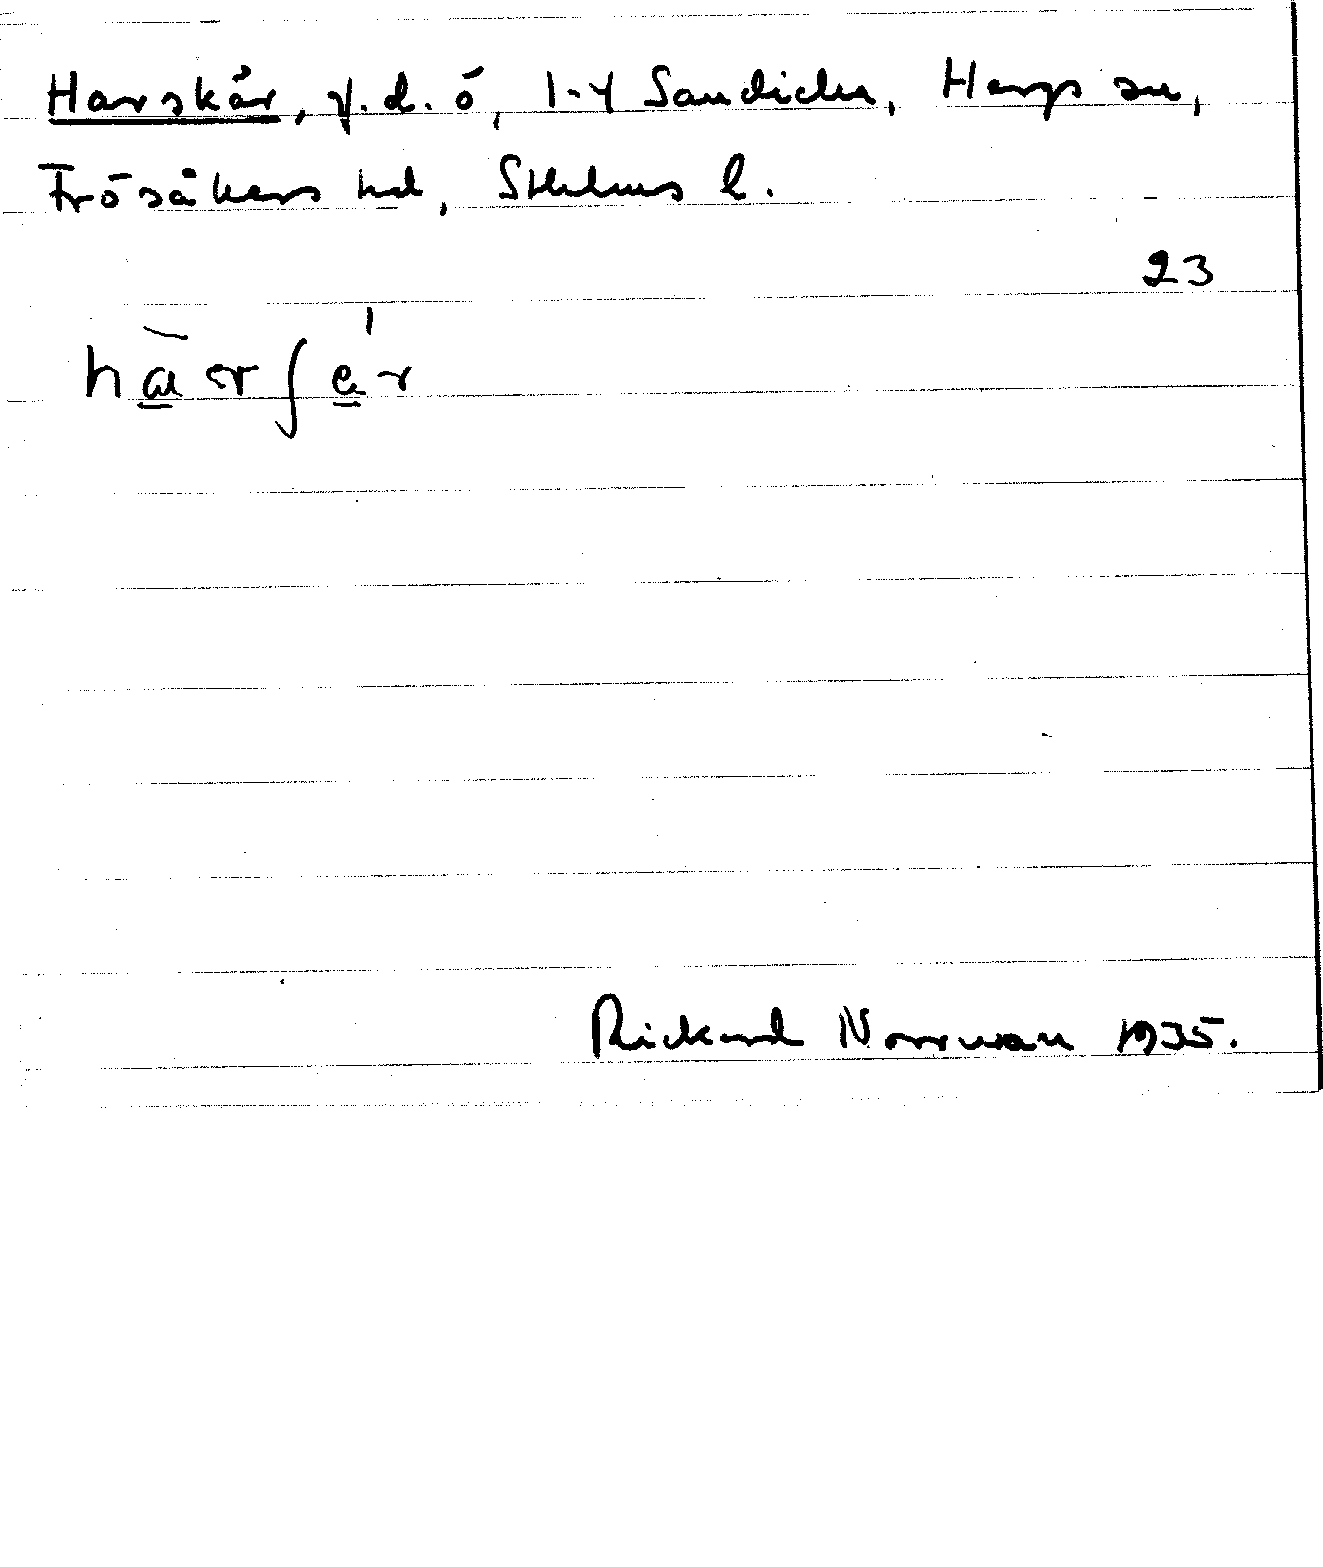 Harskär, f.d. ö, 1-4 Sandika, Hargs sn,
Frösåkers hd, Sthlms l.
23
Rickard Norrman 1935.